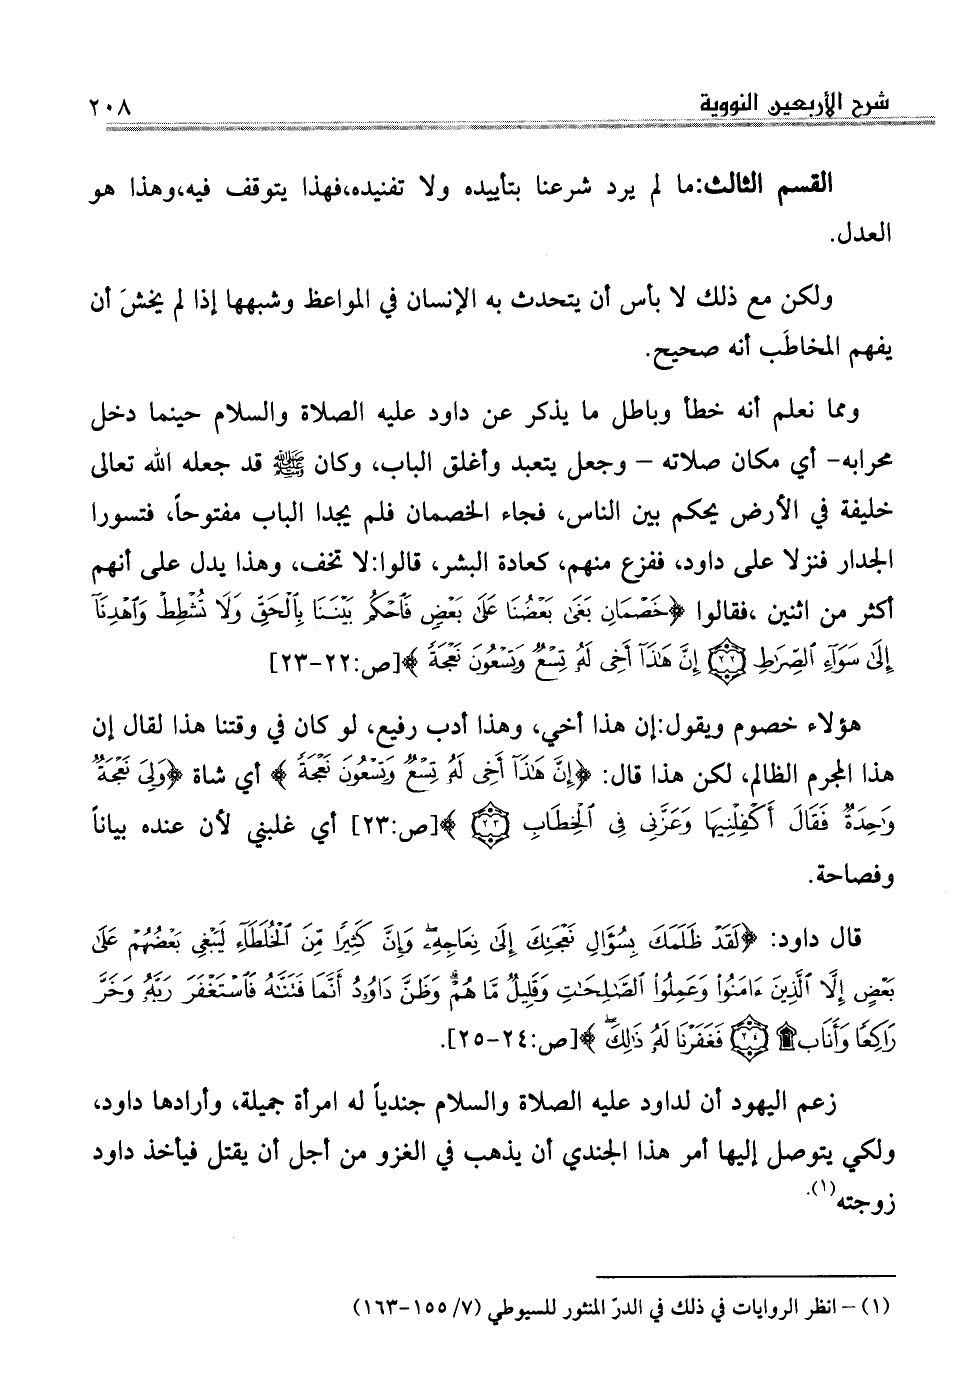 شرح الأربعين النووية ٢٠٨
القسم الثالث:ما لم يرد شرعنا بتأييده ولا تفنيده،فهذا يتوقف فيه،وهذا هو
العدل.
ولكن مع ذلك لا بأس أن يتحدث به الإنسان في المواعظ وشبهها إذا لم يخشَ أن
يفهم المخاطَب أنه صحيح.
ومما نعلم أنه خطأ وباطل ما يذكر عن داود عليه الصلاة والسلام حينما دخل
محرابه- أي مكان صلاته – وجعل يتعبد وأغلق الباب، وكان ﷺ قد جعله الله تعالى
خليفة في الأرض يحكم بين الناس، فجاء الخصمان فلم يجدا الباب مفتوحاً، فتسورا
الجدار فنزلا على داود، ففزع منهم، كعادة البشر، قالوا:لا تخف، وهذا يدل على أنهم
أكثر من اثنين ،فقالوا ﴿خَصْمَانِ بَغَىٰ بَعْضُنَا عَلَىٰ بَعْضٍ فَٱحْكُم بَيْنَنَا بِٱلْحَقِّ وَلَا تُشْطِطْ وَٱهْدِنَآ
إِلَىٰ سَوَآءِ ٱلصِّرَٰطِ ٢٢ إِنَّ هَٰذَآ أَخِى لَهُۥ تِسْعٌ وَتِسْعُونَ نَعْجَةً ﴾[ص:٢٢-٢٣]
هؤلاء خصوم ويقول:إن هذا أخي، وهذا أدب رفيع، لو كان في وقتنا هذا لقال إن
هذا المجرم الظالم، لكن هذا قال: ﴿إِنَّ هَٰذَآ أَخِى لَهُۥ تِسْعٌ وَتِسْعُونَ نَعْجَةً ﴾ أي شاة ﴿وَلِىَ نَعْجَةٌ
وَٰحِدَةٌ فَقَالَ أَكْفِلْنِيهَا وَعَزَّنِى فِى ٱلْخِطَابِ ٢٣ ﴾[ص:٢٣] أي غلبني لأن عنده بياناً
وفصاحة.
قال داود: ﴿لَقَدْ ظَلَمَكَ بِسُؤَالِ نَعْجَتِكَ إِلَىٰ نِعَاجِهِۦ ۖ وَإِنَّ كَثِيرًا مِّنَ ٱلْخُلَطَآءِ لَيَبْغِى بَعْضُهُمْ عَلَىٰ
بَعْضٍ إِلَّا ٱلَّذِينَ ءَامَنُوا۟ وَعَمِلُوا۟ ٱلصَّٰلِحَٰتِ وَقَلِيلٌ مَّا هُمْ ۗ وَظَنَّ دَاوُۥدُ أَنَّمَا فَتَنَّٰهُ فَٱسْتَغْفَرَ رَبَّهُۥ وَخَرَّ
رَاكِعًا وَأَنَابَ ۩ ٢٤ فَغَفَرْنَا لَهُۥ ذَٰلِكَ ۖ ﴾[ص:٢٤-٢٥].
زعم اليهود أن لداود عليه الصلاة والسلام جندياً له امرأة جميلة، وأرادها داود،
ولكي يتوصل إليها أمر هذا الجندي أن يذهب في الغزو من أجل أن يقتل فيأخذ داود
زوجته(١).
(١) – انظر الروايات في ذلك في الدرّ المنثور للسيوطي (٧/ ١٥٥-١٦٣)